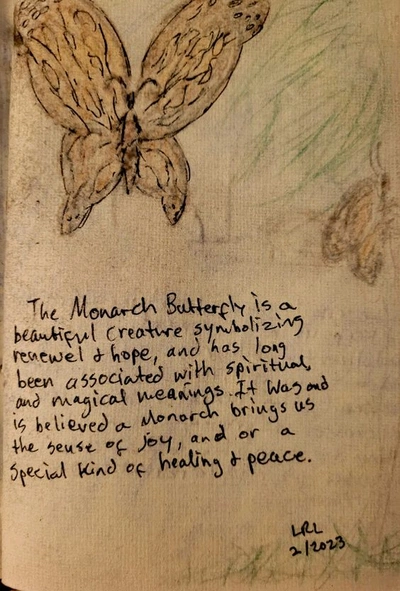 The Monarch Butterfly is a
beautiful creature symbolizing
renewel & hope, and has long
been associated with spiritual,
and magical meanings. It was and
is believed a Monarch brings us
the sense of Joy, and or a
Special Kind of healing & peace.
LRL
2/2023